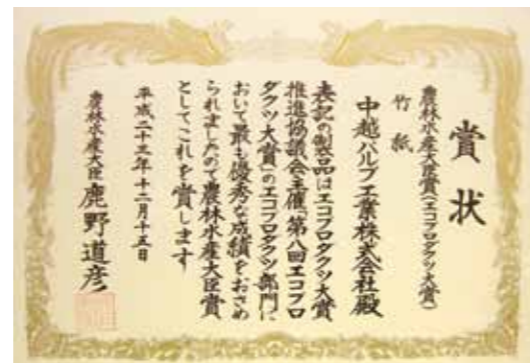 賞状
農林水産大臣賞(エコプロダクツ大賞)
竹紙
中越パルプ工業株式会社殿
表記の製品はエコプロダクツ大賞
推進協議会主催「第八回エコプロ
ダクツ大賞」のエコプロダクツ部門に
おいて最も優秀な成績をおさめ
られましたので農林水産大臣賞
としてこれを賞します
平成二十三年十二月十五日
農林水産大臣 鹿野道彦